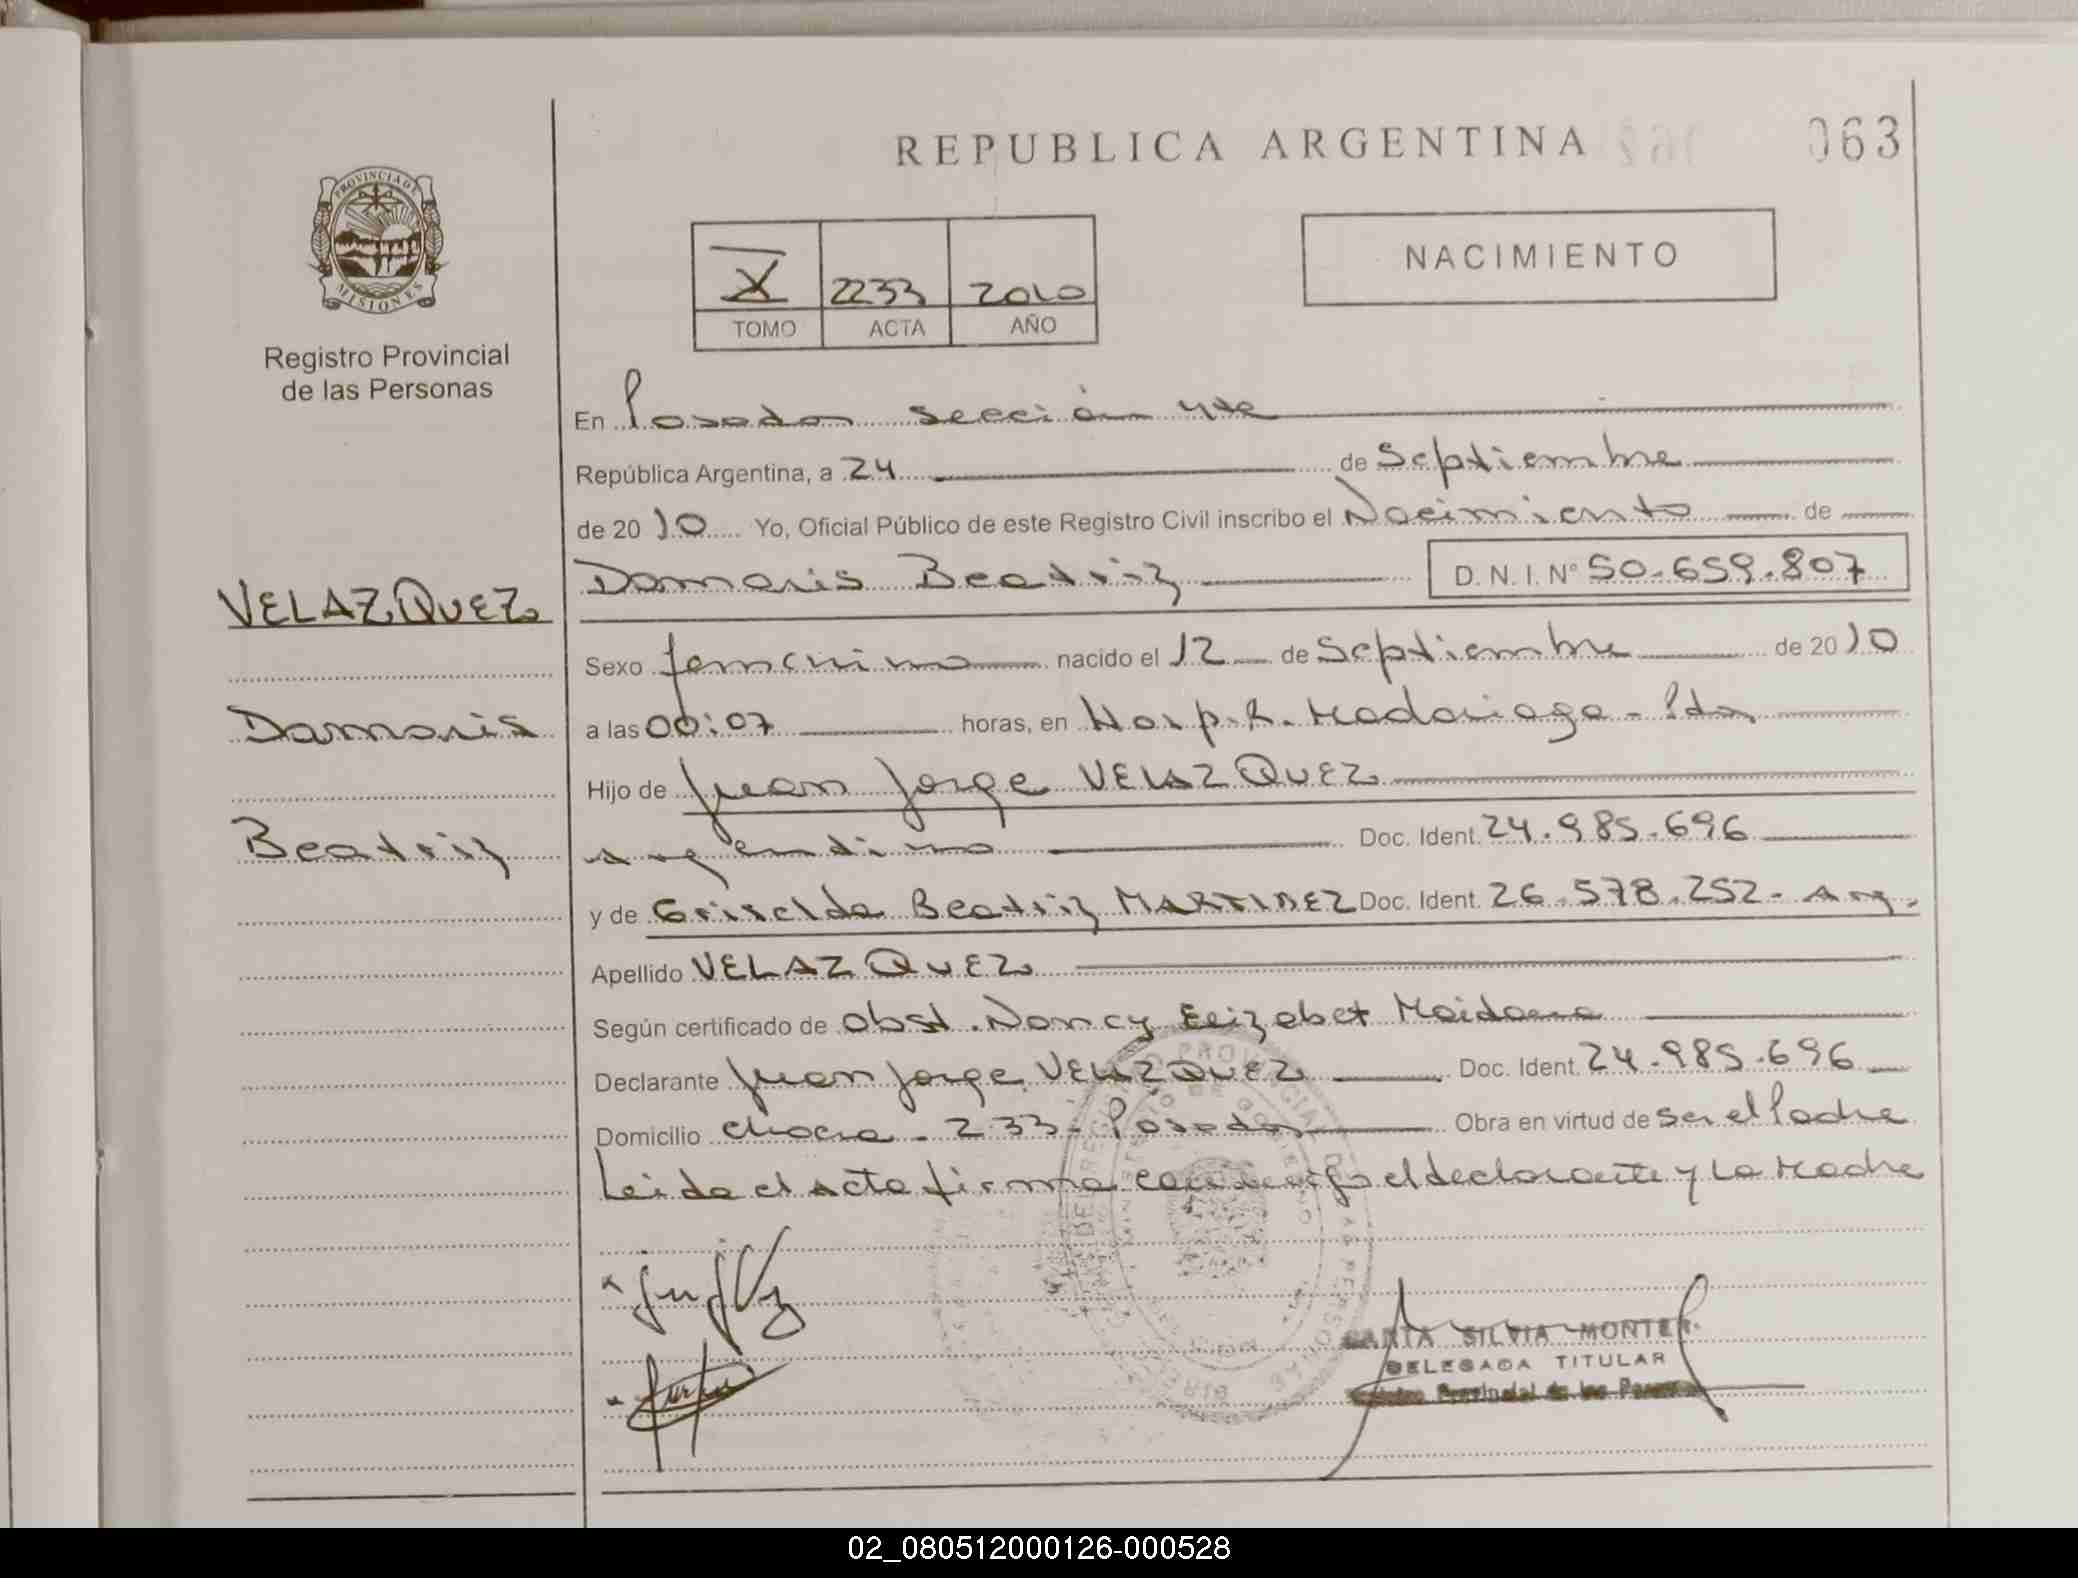 REPUBLICA ARGENTINA
063
PROVINCIA DE
MISIONES
Registro Provincial
de las Personas
X 2233 2010
TOMO ACTA AÑO
NACIMIENTO
En Posadas sección 4ta
República Argentina, a 24 de Septiembre
de 2010 Yo, Oficial Público de este Registro Civil inscribo el Nacimiento de
Damaris Beatriz D.N.I. Nº 50.659.807
VELAZQUEZ
Damaris
Beatriz
Sexo femenino nacido el 12 de Septiembre de 2010
a las 00:07 horas, en Hosp. R. Madariaga - Pdas
Hijo de Juan Jorge VELAZQUEZ
argentino Doc. Ident. 24.985.696
y de Griselda Beatriz MARTINEZ Doc. Ident. 26.578.252 - Arg.
Apellido VELAZQUEZ
Según certificado de obst. Nancy Elizabet Maidana
Declarante Juan Jorge VELAZQUEZ Doc. Ident. 24.985.696
Domicilio chacra - 233 - Posadas Obra en virtud de ser el Padre
Leida el acta firma conmigo el declarante y la Madre
SILVIA MONTE
DELEGADA TITULAR
Provincial de las
02_080512000126-000528